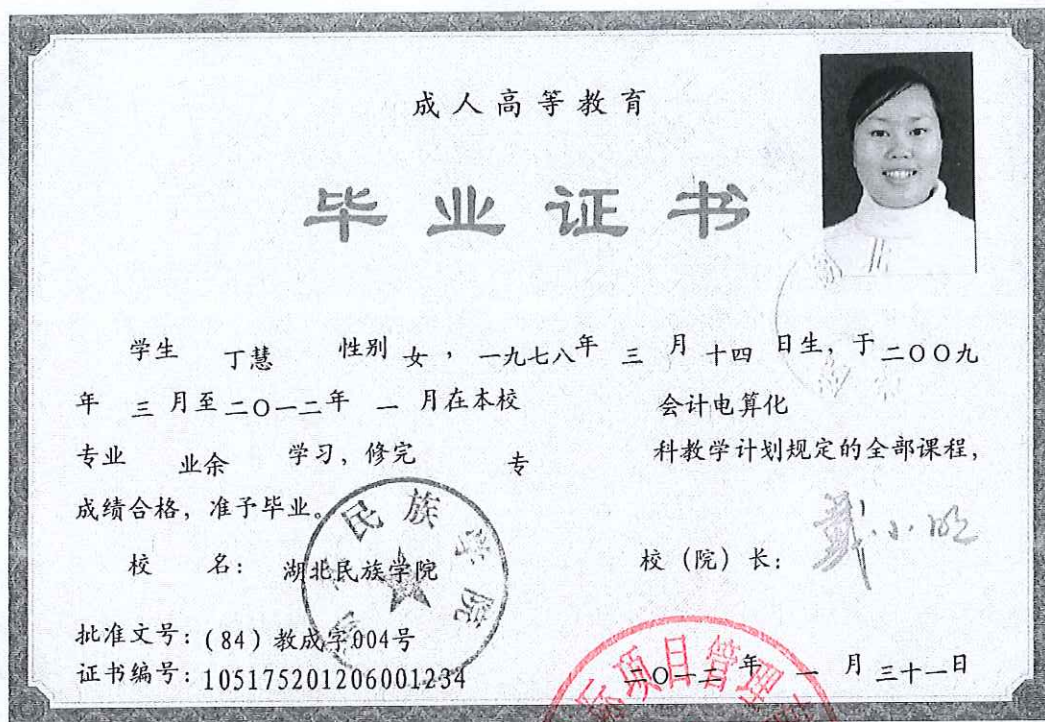 成人高等教育
毕业证书
学生 丁慧 性别 女 , 一九七八年 三 月 十四 日生, 于二〇〇九
年 三 月至二〇一二年 一 月在本校 会计电算化
专业 业余 学习, 修完 专 科教学计划规定的全部课程,
成绩合格, 准予毕业。
民族学院
校 名: 湖北民族学院 校(院)长: 戴小明
批准文号: (84) 教成字004号
证书编号: 105175201206001234 二〇一二年 一 月 三十一日
际项目管理